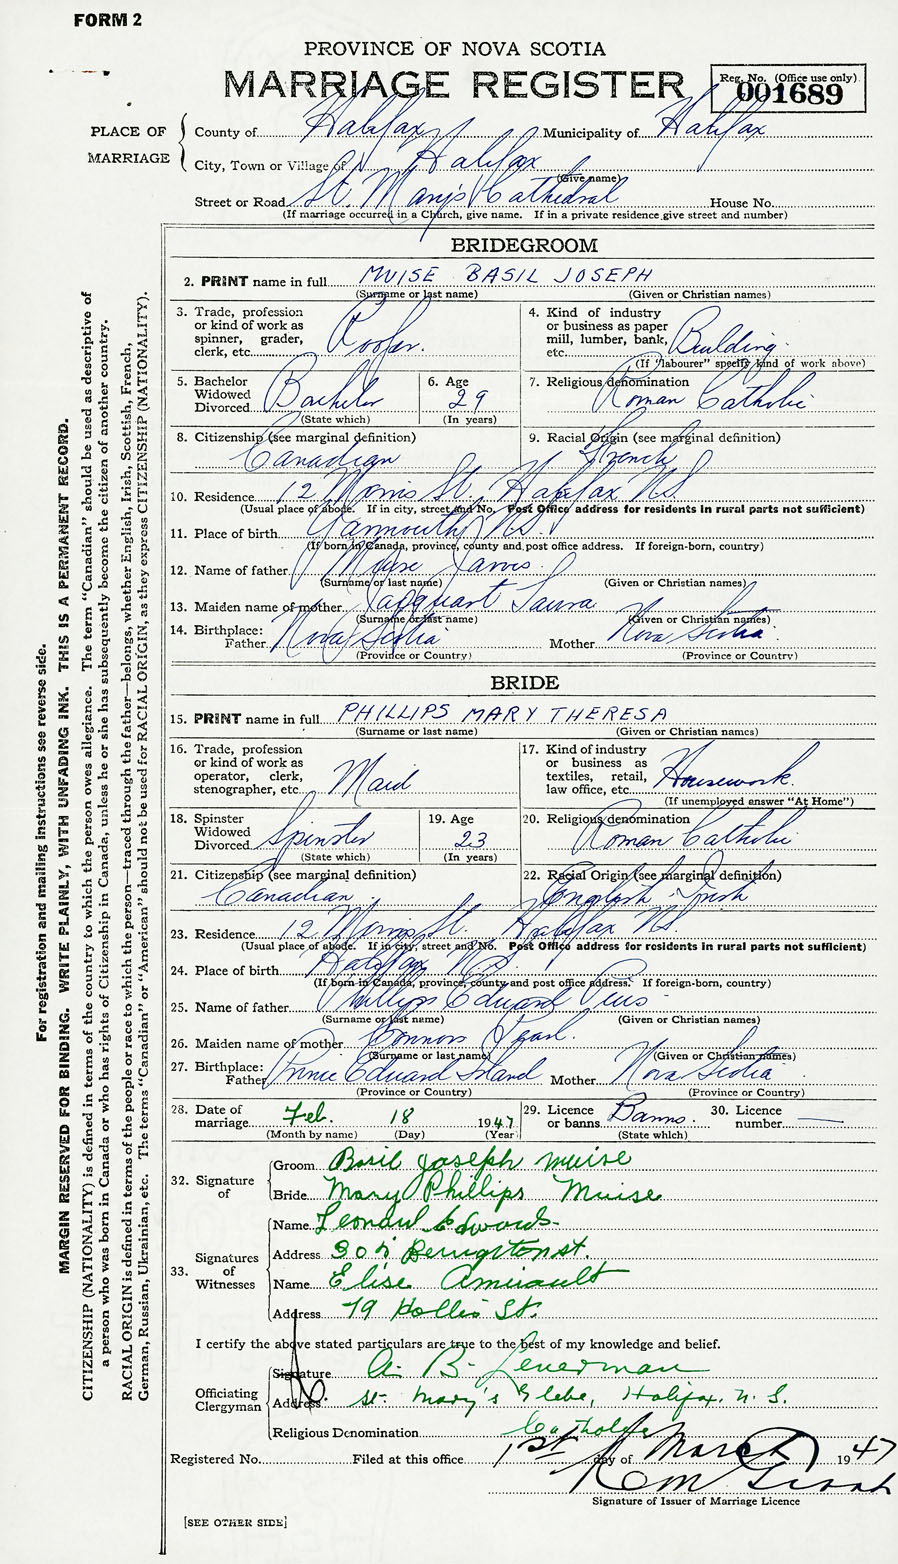 FORM 2
PROVINCE OF NOVA SCOTIA
MARRIAGE REGISTER
Reg. No. (Office use only)
001689
PLACE OF MARRIAGE
County of Halifax Municipality of Halifax
City, Town or Village of Halifax
(Give name)
Street or Road St. Mary's Cathedral House No.
(If marriage occurred in a Church, give name. If in a private residence give street and number)
BRIDEGROOM
2. PRINT name in full MUISE BASIL JOSEPH
(Surname or last name) (Given or Christian names)
3. Trade, profession or kind of work as spinner, grader, clerk, etc. Roofer.
4. Kind of industry or business as paper mill, lumber, bank, etc. Building.
(If "labourer" specify kind of work above)
5. Bachelor Widowed Divorced Bachelor
(State which)
6. Age 29
(In years)
7. Religious denomination Roman Catholic
8. Citizenship (see marginal definition) Canadian
9. Racial Origin (see marginal definition) French
10. Residence 12 Morris St. Halifax N.S.
(Usual place of abode. If in city, street and No. Post Office address for residents in rural parts not sufficient)
11. Place of birth Yarmouth N.S.
(If born in Canada, province, county and post office address. If foreign-born, country)
12. Name of father Muise
(Surname or last name) (Given or Christian names)
13. Maiden name of mother Jacquart Laura
(Surname or last name) (Given or Christian names)
14. Birthplace: Father Nova Scotia Mother Nova Scotia
(Province or Country) (Province or Country)
BRIDE
15. PRINT name in full PHILLIPS MARY THERESA
(Surname or last name) (Given or Christian names)
16. Trade, profession or kind of work as operator, clerk, stenographer, etc. Maid
17. Kind of industry or business as textiles, retail, law office, etc. Housework.
(If unemployed answer "At Home")
18. Spinster Widowed Divorced Spinster
(State which)
19. Age 23
(In years)
20. Religious denomination Roman Catholic
21. Citizenship (see marginal definition) Canadian
22. Racial Origin (see marginal definition) English - Irish
23. Residence 12 Morris St. Halifax N.S.
(Usual place of abode. If in city, street and No. Post Office address for residents in rural parts not sufficient)
24. Place of birth Halifax N.S.
(If born in Canada, province, county and post office address. If foreign-born, country)
25. Name of father Phillips Edward Pius
(Surname or last name) (Given or Christian names)
26. Maiden name of mother Connors Pearl.
(Surname or last name) (Given or Christian names)
27. Birthplace: Father Prince Edward Island Mother Nova Scotia
(Province or Country) (Province or Country)
28. Date of marriage Feb. 18 1947
(Month by name) (Day) (Year)
29. Licence or banns Banns.
(State which)
30. Licence number —
32. Signature of
Groom Basil Joseph Muise
Bride Mary Phillips Muise
33. Signatures of Witnesses
Name Leonard Edwards
Address St.
Name Elise Amirault
Address 79 Hollis St.
I certify the above stated particulars are true to the best of my knowledge and belief.
Officiating Clergyman
Signature A. B.
Address St. Mary's Glebe, Halifax, N.S.
Religious Denomination Catholic
Registered No. Filed at this office 1st day of March 1947
Signature of Issuer of Marriage Licence
[SEE OTHER SIDE]
For registration and mailing instructions see reverse side.
MARGIN RESERVED FOR BINDING. WRITE PLAINLY, WITH UNFADING INK. THIS IS A PERMANENT RECORD.
CITIZENSHIP (NATIONALITY) is defined in terms of the country to which the person owes allegiance. The term "Canadian" should be used as descriptive of
a person who was born in Canada or who has rights of Citizenship in Canada, unless he or she has subsequently become the citizen of another country.
RACIAL ORIGIN is defined in terms of the people or race to which the person—traced through the father—belongs, whether English, Irish, Scottish, French,
German, Russian, Ukrainian, etc. The terms "Canadian" or "American" should not be used for RACIAL ORIGIN, as they express CITIZENSHIP (NATIONALITY).